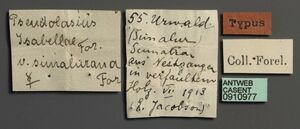 Pseudolasius
Isabellae For.
v. simalurana
☿ For
55. Urwald
(Simalur)
Sumatra
aus Nestgängen
in verfaultem
Holz. VI 1913
(E. Jacobson)
Typus
Coll. Forel.
ANTWEB
CASENT
0910977